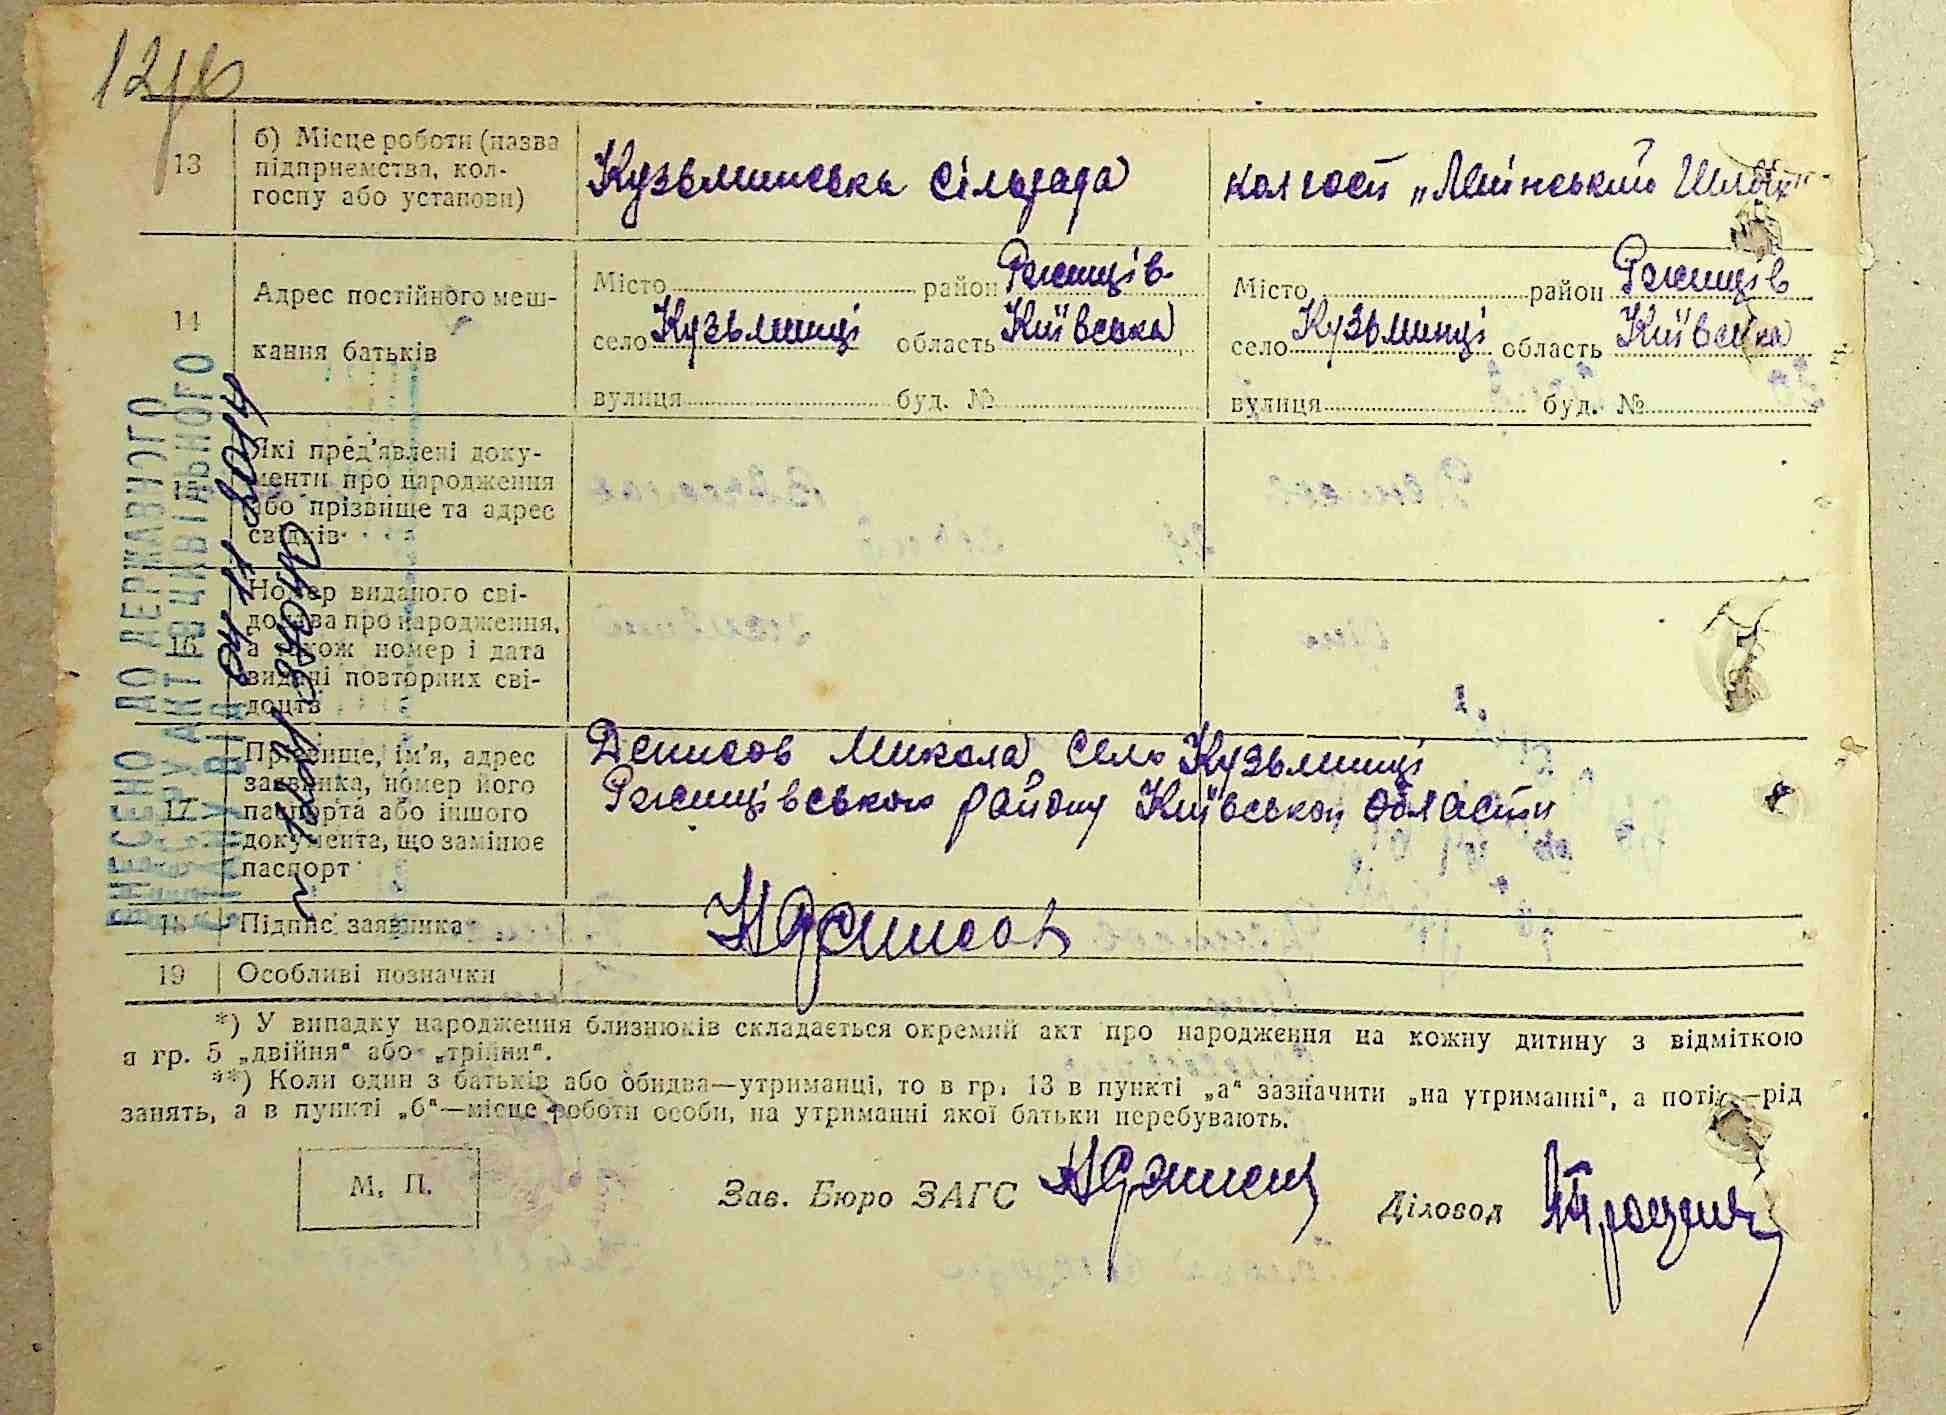 13
б) Місце роботи (назва
підприємства, кол-
госпу або установи)
Кузьминська сільрада
колгосп „Ленінський Шлях"
14
Адрес постійного меш-
кання батьків
Місто район Ржищів
село Кузьминці область Київська
вулиця буд. №
Місто район Ржищів
село Кузьминці область Київська
вулиця буд. №
15
Які пред'явлені доку-
менти про народження
або прізвище та адрес
свідків
16
Номер виданого сві-
доцтва про народження,
а також номер і дата
видачі повторних сві-
доцтв
17
Прізвище, ім'я, адрес
заявника, номер його
паспорта або іншого
документа, що замінює
паспорт
Денисов Микола село Кузьминці
Ржищівського району Київської области
18
Підпис заявника
НДенисов
19
Особливі позначки
*) У випадку народження близнюків складається окремий акт про народження на кожну дитину з відміткою
в гр. 5 „двійня" або „трійня".
**) Коли один з батьків або обидва—утриманці, то в гр. 13 в пункті „а" зазначити „на утриманні", а потім—рід
занять, а в пункті „б"—місце роботи особи, на утриманні якої батьки перебувають.
М. П.
Зав. Бюро ЗАГС
Діловод
ВНЕСЕНО ДО ДЕРЖАВНОГО
РЕЄСТРУ АКТІВ ЦИВІЛЬНОГО
СТАНУ ВІД 04 11 2014